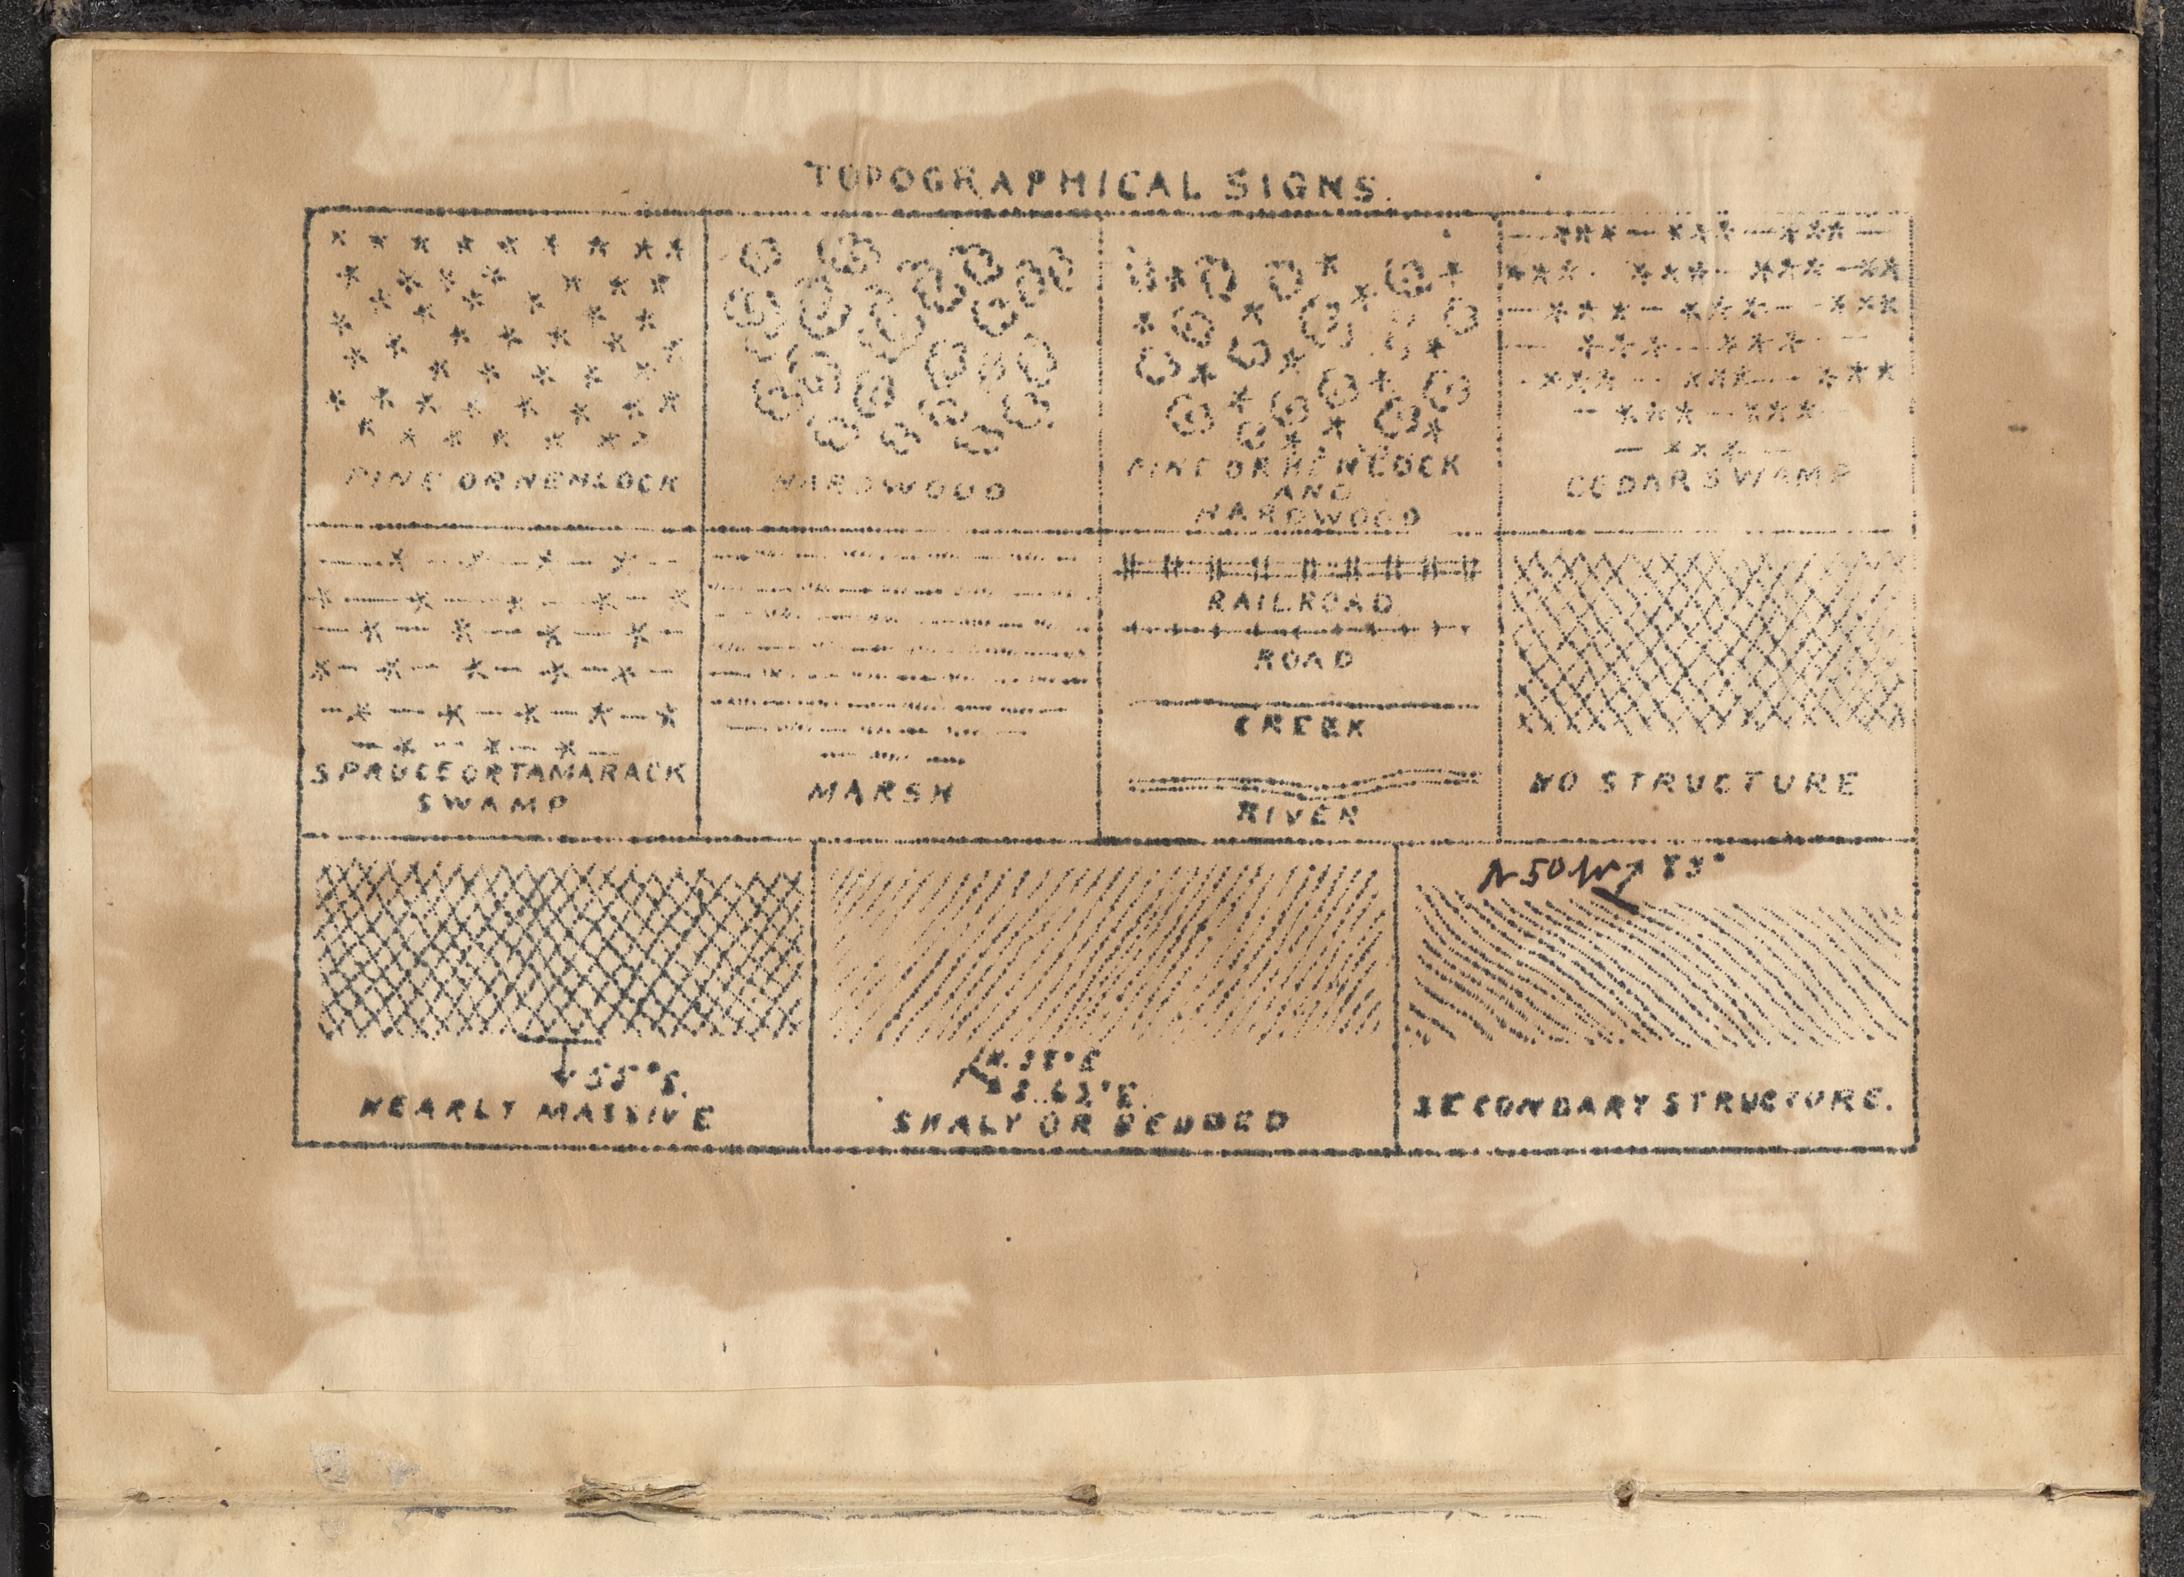 TOPOGRAPHICAL SIGNS.
PINE OR HEMLOCK
HARDWOOD
PINE OR HEMLOCK
AND
HARDWOOD
CEDAR SWAMP
SPRUCE OR TAMARACK
SWAMP
MARSH
RAILROAD
ROAD
CREEK
RIVER
NO STRUCTURE
55° S.
NEARLY MASSIVE
E
S. 62° E.
SHALY OR BEDDED
N 50 W
SECONDARY STRUCTURE.